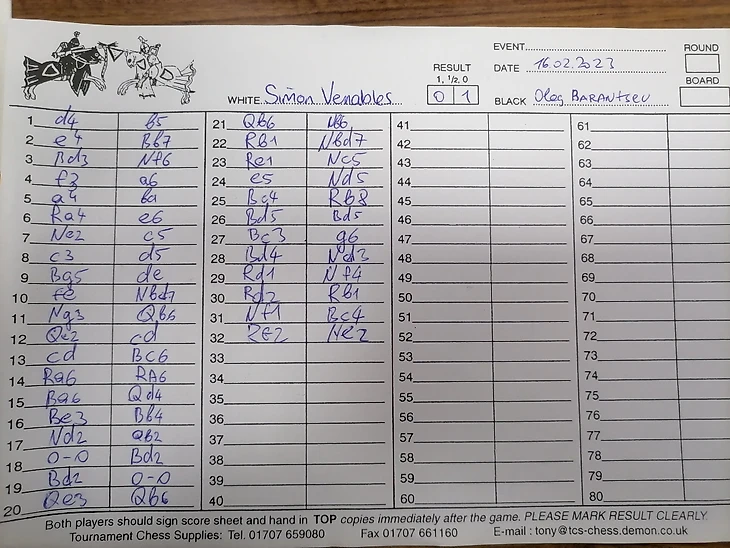 EVENT
ROUND
RESULT
1, 1/2, 0
DATE 16.02.2023
BOARD
WHITE Simon Venables
0 1
BLACK Oleg BARANTSEV
1 d4 b5 21 Qb6 Nb6 41 61
2 e4 Bb7 22 Rb1 Nbd7 42 62
3 Bd3 Nf6 23 Re1 Nc5 43 63
4 f3 a6 24 e5 Nd5 44 64
5 a4 ba 25 Bc4 Rb8 45 65
6 Ra4 e6 26 Bd5 Bd5 46 66
7 Ne2 c5 27 Bc3 g6 47 67
8 c3 d5 28 Bd4 Nd3 48 68
9 Bg5 de 29 Rd1 Nf4 49 69
10 fe Nbd7 30 Rd2 Rb1 50 70
11 Ng3 Qb6 31 Nf1 Bc4 51 71
12 Qe2 cd 32 Rf2 Ne2 52 72
13 cd Bc6 33 53 73
14 Ra6 RA6 34 54 74
15 Ba6 Qd4 35 55 75
16 Be3 Bb4 36 56 76
17 Nd2 Qb2 37 57 77
18 0-0 Bd2 38 58 78
19 Bd2 0-0 39 59 79
20 Qe3 Qb6 40 60 80
Both players should sign score sheet and hand in TOP copies immediately after the game. PLEASE MARK RESULT CLEARLY.
Tournament Chess Supplies: Tel. 01707 659080 Fax 01707 661160 E-mail : tony@tcs-chess.demon.co.uk